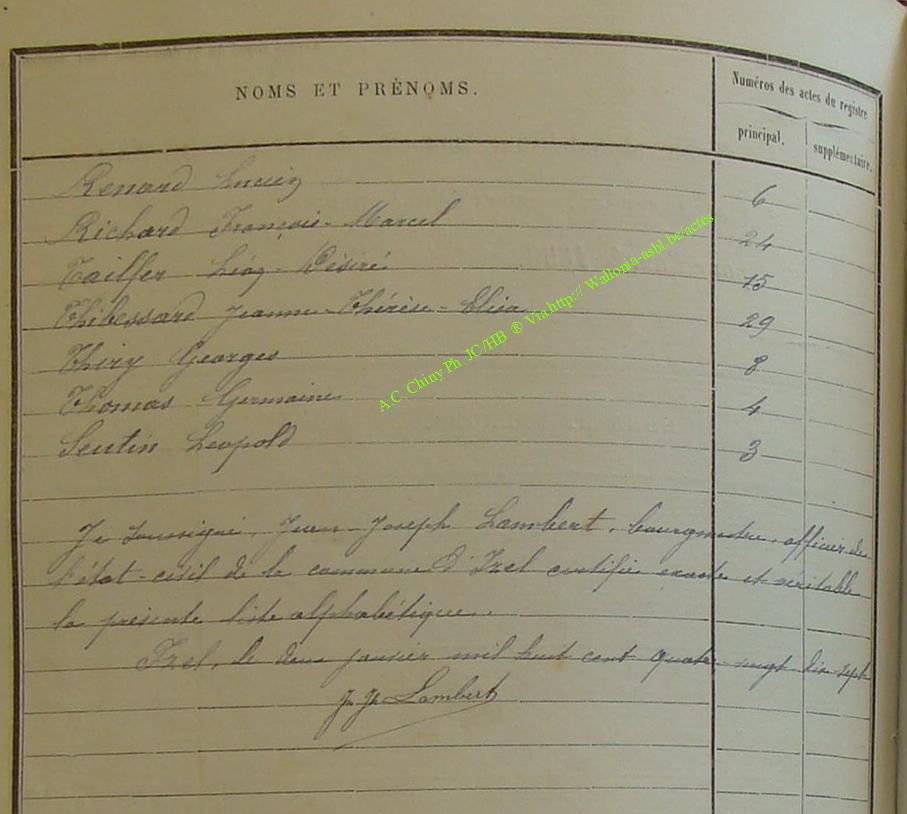 NOMS ET PRÉNOMS.
Numéros des actes du registre
principal.
supplémentaire.
Renard Lucien 6
Richard François-Marcel 24
Tailfer Léon-Désiré 15
Thibessard Jeanne-Thérèse-Elisa 29
Thiry Georges 8
Thomas Germaine 4
Sentin Léopold 3
Je soussigné, Jean-Joseph Lambert, bourgmestre, officier de
l'état-civil de la commune d'Izel certifie exacte et véritable
la présente liste alphabétique.
Izel, le deux janvier mil huit cent quatre-vingt dix sept
J. Jh Lambert
A.C. Chiny Ph. JC/HB ® Via http:// Wallonia-asbl.be/actes